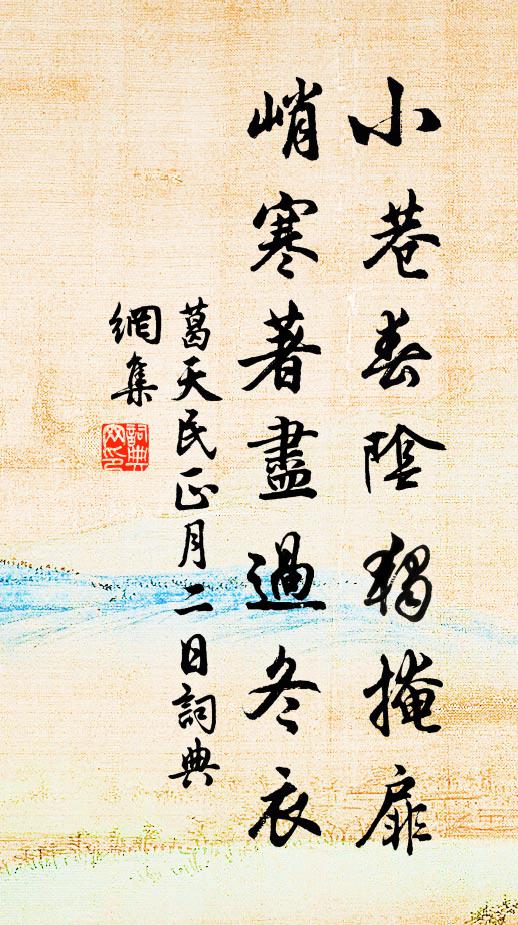 小巷春陰獨掩扉
峭寒著盡過冬衣
葛天民正月二日詞典
網集
詞典網印